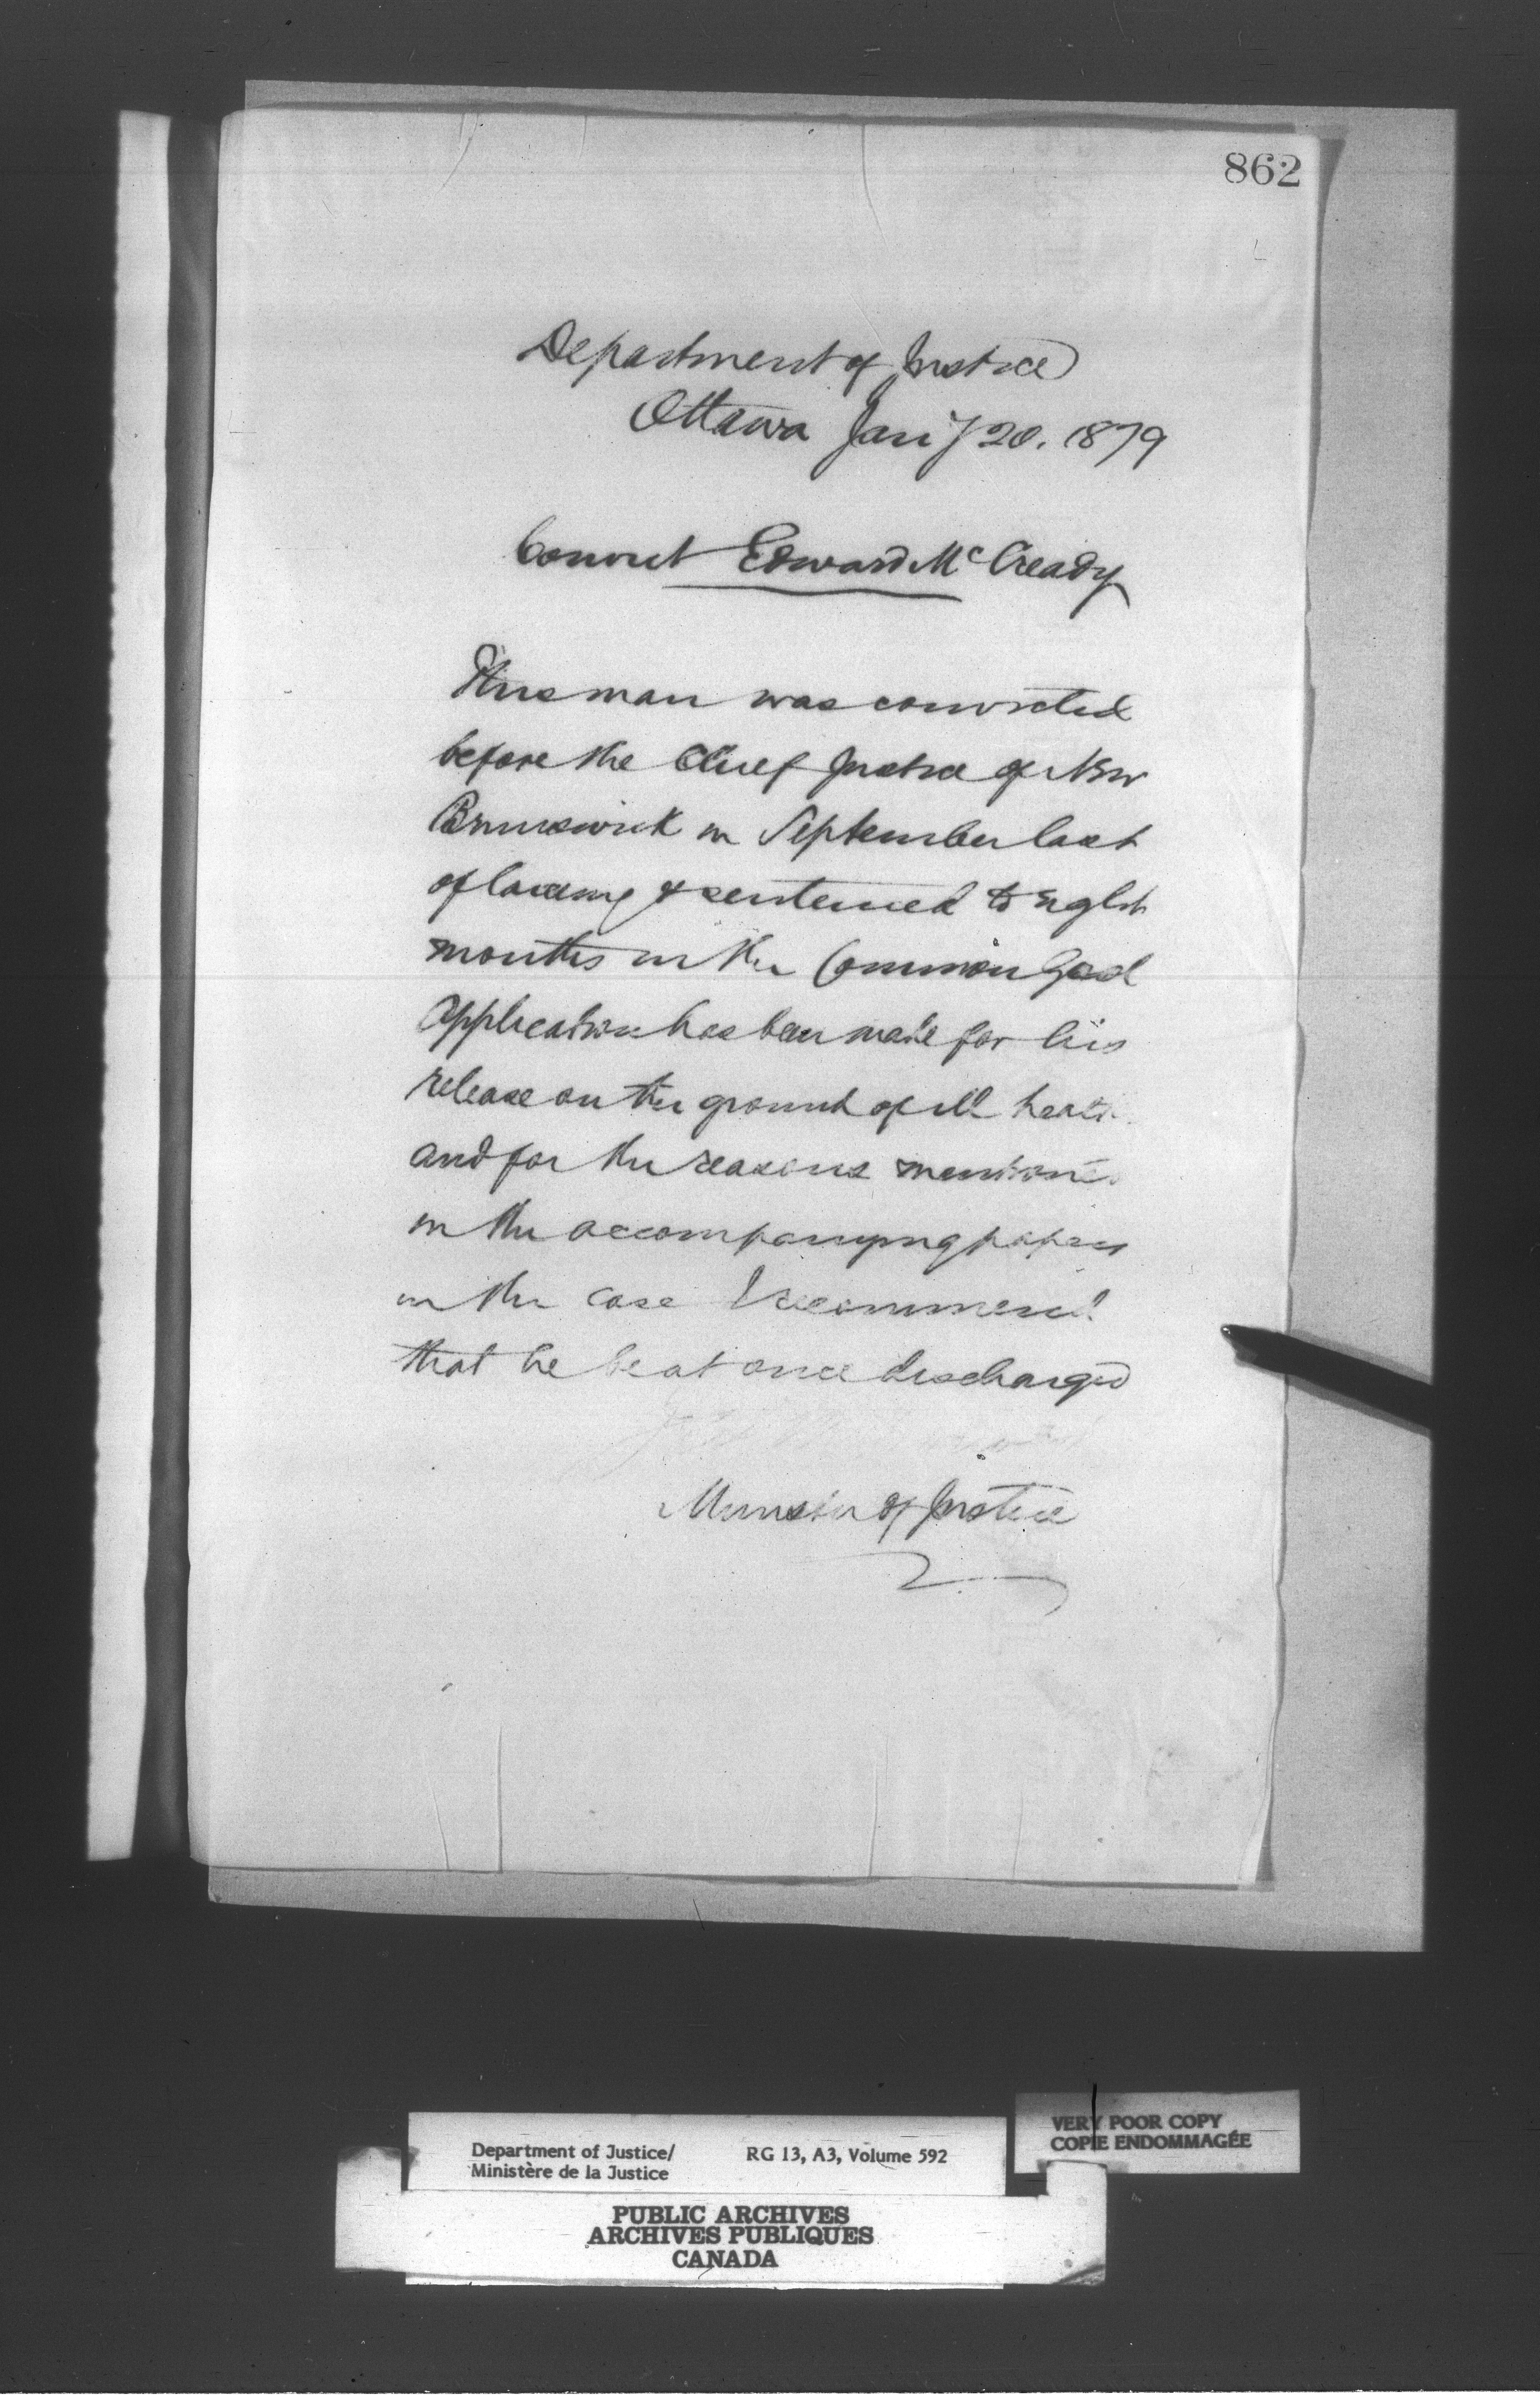 862
Department of Justice
Ottawa Jany 20. 1879
Convict Edward McCready
This man was convicted
before the Chief Justice of New
Brunswick in September last
of larceny & sentenced to Eight
months in the Common Gaol
Application has been made for his
release on the ground of ill health
and for the reasons mentioned
in the accompanying papers
in the case I recommend
that he be at once discharged
Minister of Justice
VERY POOR COPY
COPIE ENDOMMAGÉE
Department of Justice/ RG 13, A3, Volume 592
Ministère de la Justice
PUBLIC ARCHIVES
ARCHIVES PUBLIQUES
CANADA